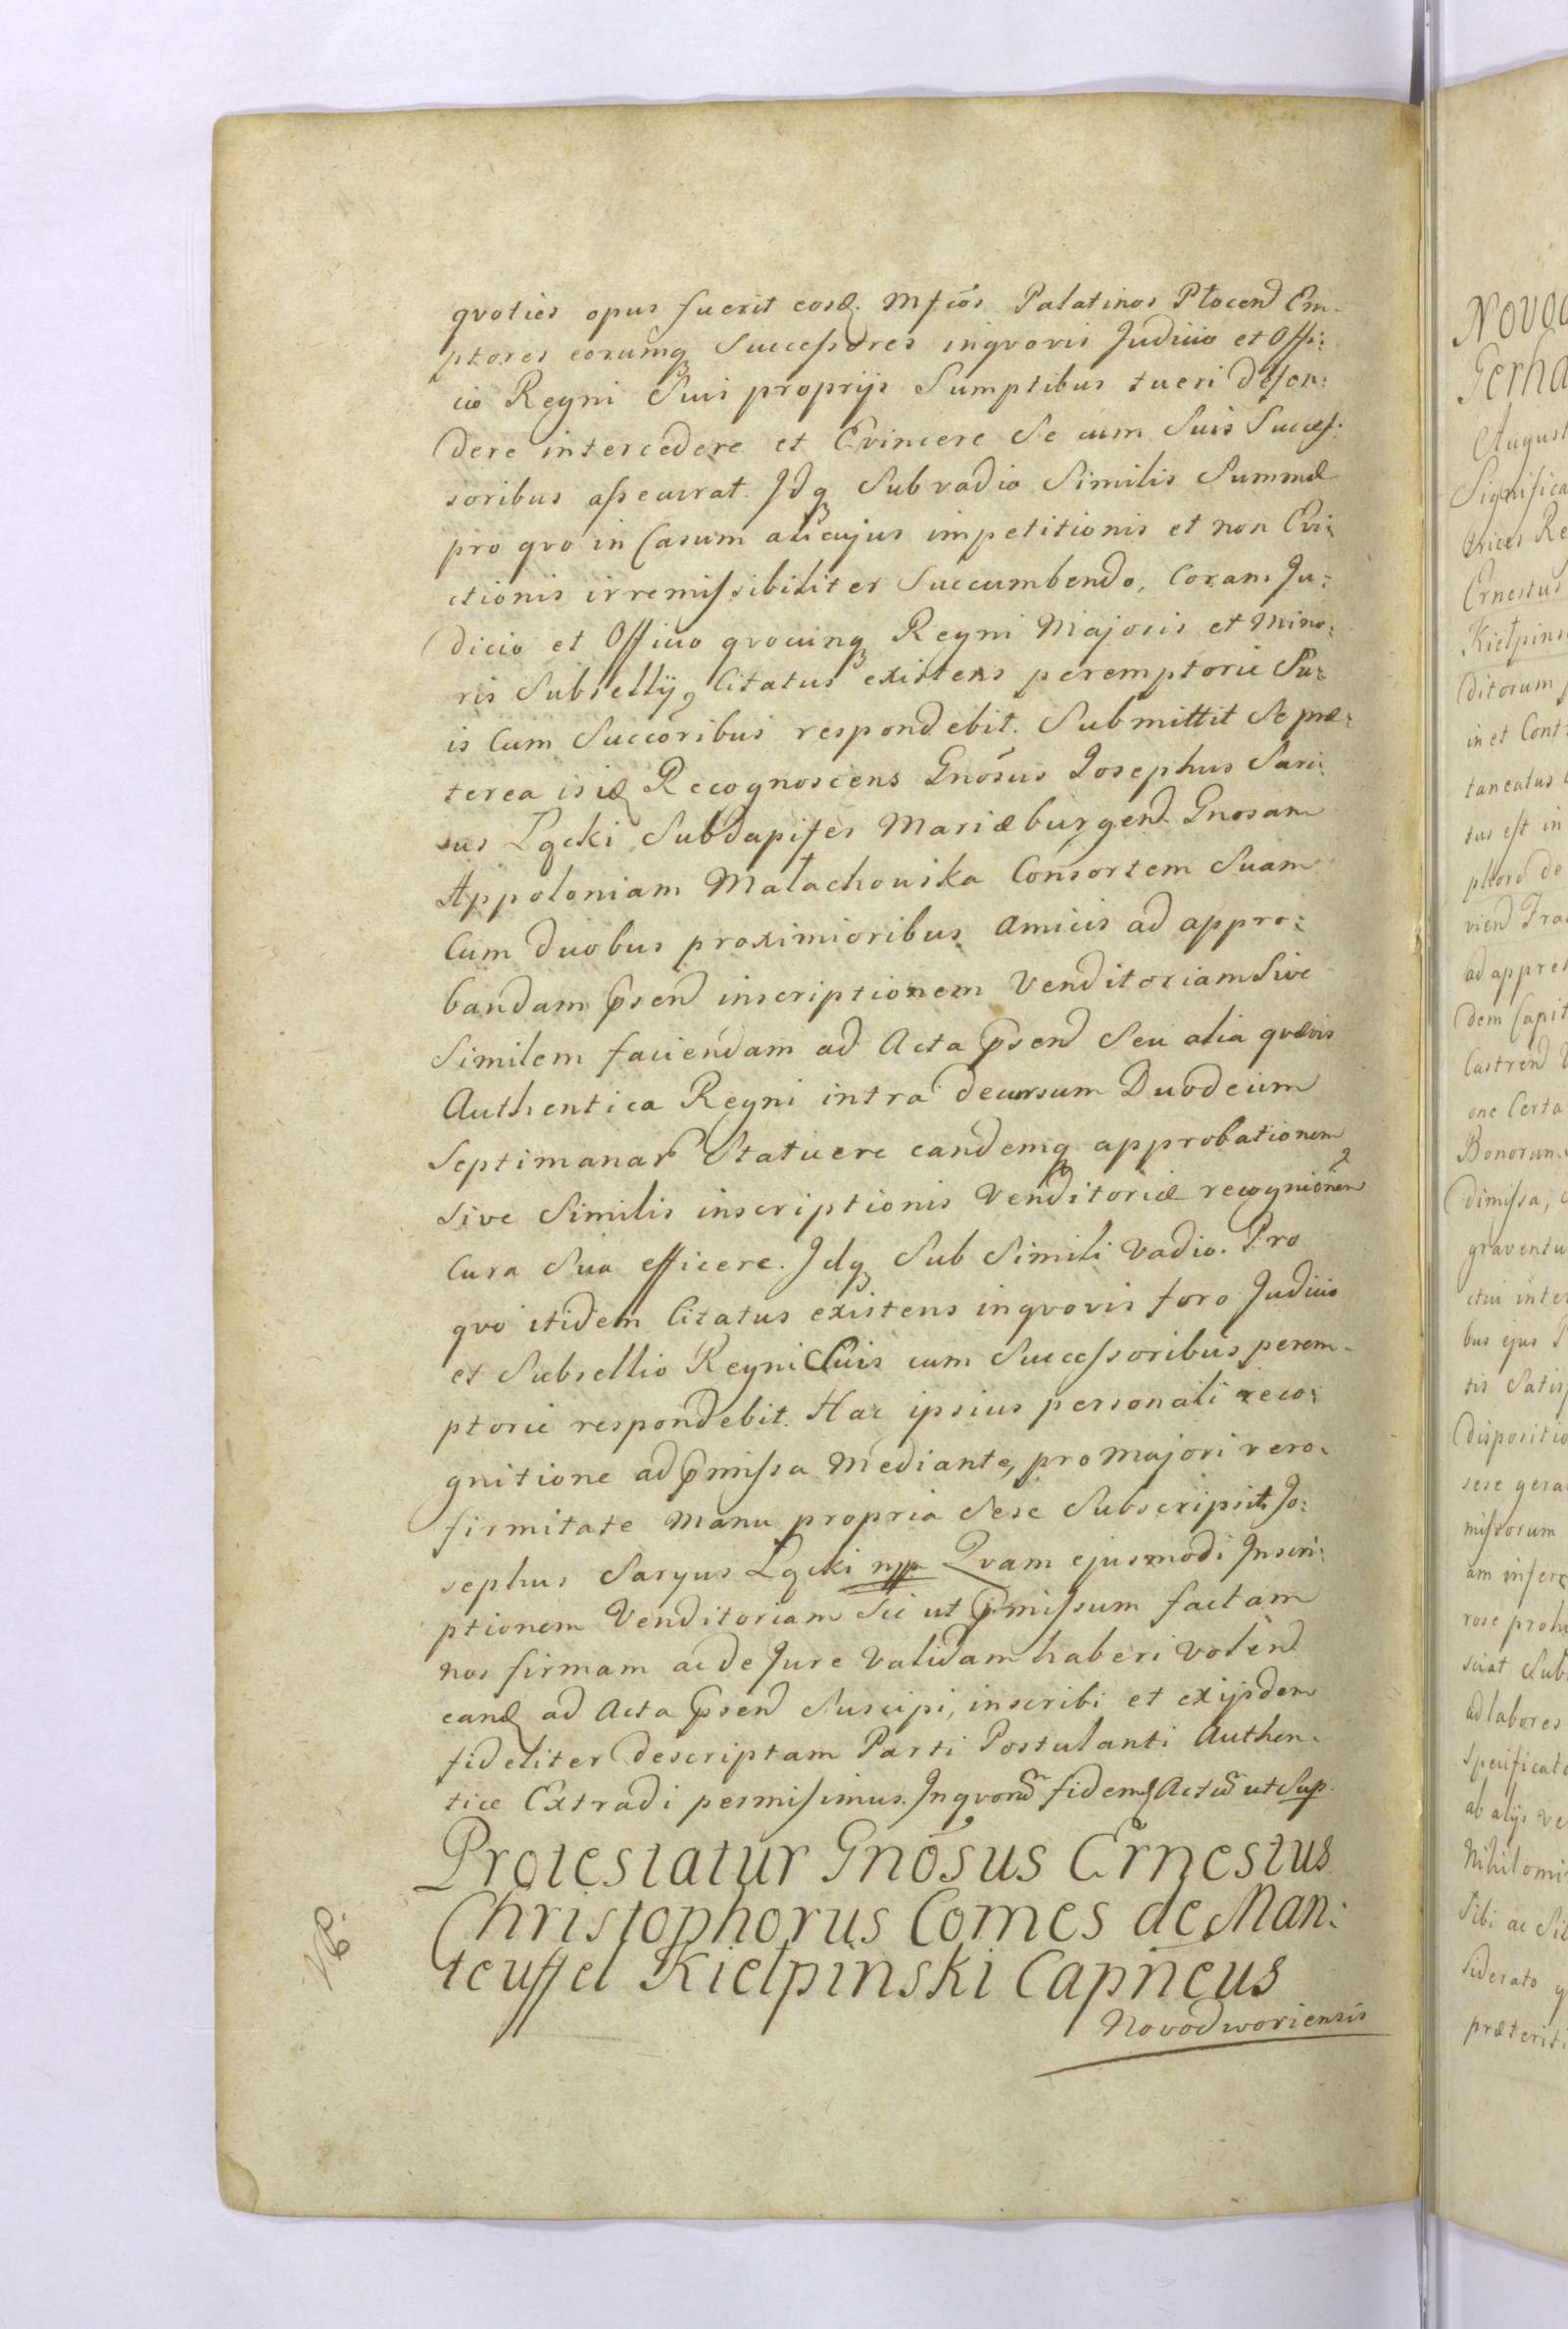 qvoties opus fuerit eosd. Mfcos Palatinos Płocen Em-
ptores eorumq Successores inqvovis Judicio et Offi:
cio Regni Suis proprijs Sumptibus tueri defen:
dere intercedere et Evincere Se cum Suis Succes:
soribus assecurat. Idq Sub vadio Similis Summæ
pro qvo in Casum alicujus impetitionis et non Evi:
ctionis irremissibiliter Succumbendo, Coram Ju:
dicio et Officio qvocunq Regni Majoris et Mino:
ris Subsellij, Citatus existens peremptorie Su:
is Cum Succoribus respondebit. Submittit Se præ:
terea is id Recognoscens Gnosus Josephus Sari:
sus Łącki Subdapifer Mariæburgen Gnosam
Appoloniam Małachowska Consortem Suam
Cum duobus proximioribus Amicis ad appro:
bandam psen inscriptionem Venditoriam Sive
Similem faciendam ad Acta psen Seu alia qvævis
Authentica Regni intra decursum Duodecim
Septimanar Statuere eandemq approbationem
Sive Similis inscriptionis Venditoriæ recognionem
Cura Sua efficere. Idq Sub Simili Vadio. Pro
qvo itidem Citatus existens inqvovis foro Judicio
et Subsellio Regni Suis cum Successoribus perem-
ptorie respondebit. Hac ipsius personali reco:
gnitione ad pmissa Mediante, pro Majori vero
firmitate Manu propria Sese Subscripsit. Jo:
sephus Saryus Łącki mpp Qvam ejusmodi Inscri:
ptionem Venditoriam Sic ut pmissum factam
nos firmam ac de Jure Validam haberi volen
eand ad Acta psen Suscipi, inscribi et exijsdem
fideliter descriptam Parti Postulanti Authen-
tice Extradi permisimus. Inqvoru fidem Actu ut Sup.
Protestatur Gnosus Ernestus
Christophorus Comes de Man:
teuffel Kiełpinski Capneus
Novodworiensis
NOVOD
Gerha
August
Significa
trices Re
Ernestus
Kiełpins
ditorum
in et Cont
taneatus
tus est in
ptord de
vien Tra
ad appre
dem Capit
Castren
one Certa
Bonorum
dimissa,
graventu
ctui inter
bus ejus
tis Satis
dispositio
sese gera
missorum
am infer
rose prohi
sciat Sub
ad labores
specificat
ab alijs ve
Nihilomi
Sibi ac Si
siderato q
præteriti